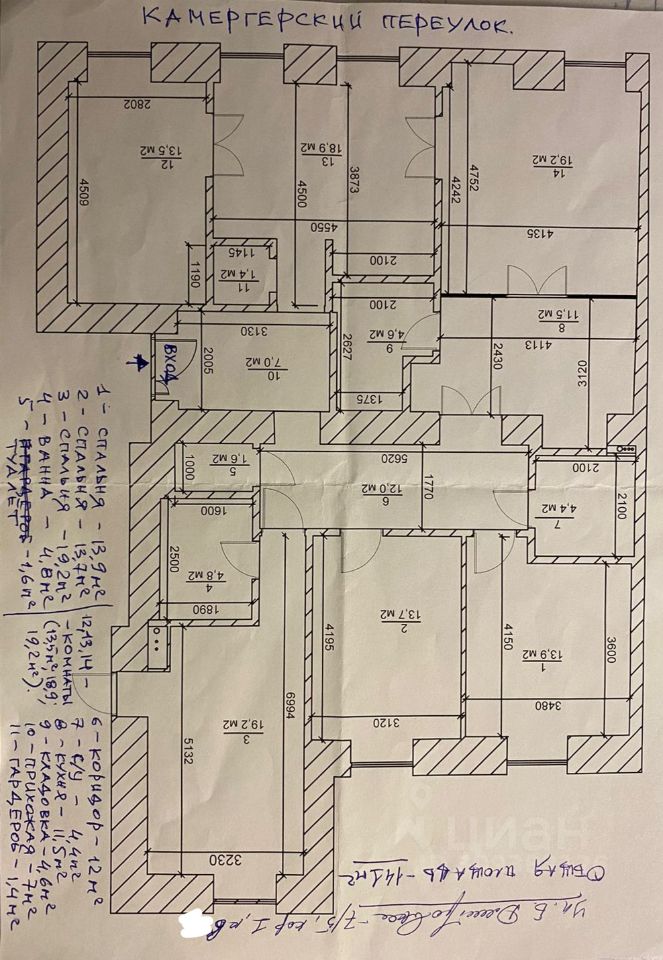 КАМЕРГЕРСКИЙ ПЕРЕУЛОК.
2802
12
13,5 м2
4509
13
18,9 м2
4500
3873
4550
14
19,2 м2
4752
4242
4135
1145
11
1,4 м2
1190
2100
2100
9
4,6 м2
2627
1375
8
11,5 м2
4113
2430
3120
3130
10
7,0 м2
2005
ВХОД
5
1,6 м2
1000
5620
6
12,0 м2
1770
2100
7
4,4 м2
2100
1600
4
4,8 м2
2500
1890
2
13,7 м2
4195
3120
1
13,9 м2
4150
3600
3480
3
19,2 м2
6994
5132
3230
1 - СПАЛЬНЯ - 13,9 м²
2 - СПАЛЬНЯ - 13,7 м²
3 - СПАЛЬНЯ - 19,2 м²
4 - ВАННА - 4,8 м²
5 - ГАРДЕРОБ - 1,6 м²
ТУАЛЕТ
12,13,14 -
- КОМНАТЫ
(13,5 м², 18,9;
19,2 м²).
6 - КОРИДОР - 12 м²
7 - С/У - 4,4 м²
8 - КУХНЯ - 11,5 м²
9 - КЛАДОВКА - 4,6 м²
10 - ПРИХОЖАЯ - 7 м²
11 - ГАРДЕРОБ - 1,4 м²
ОБЩАЯ ПЛОЩАДЬ - 141 м²
Ул. Б Дмитровка - 7/5, кор 1, кв